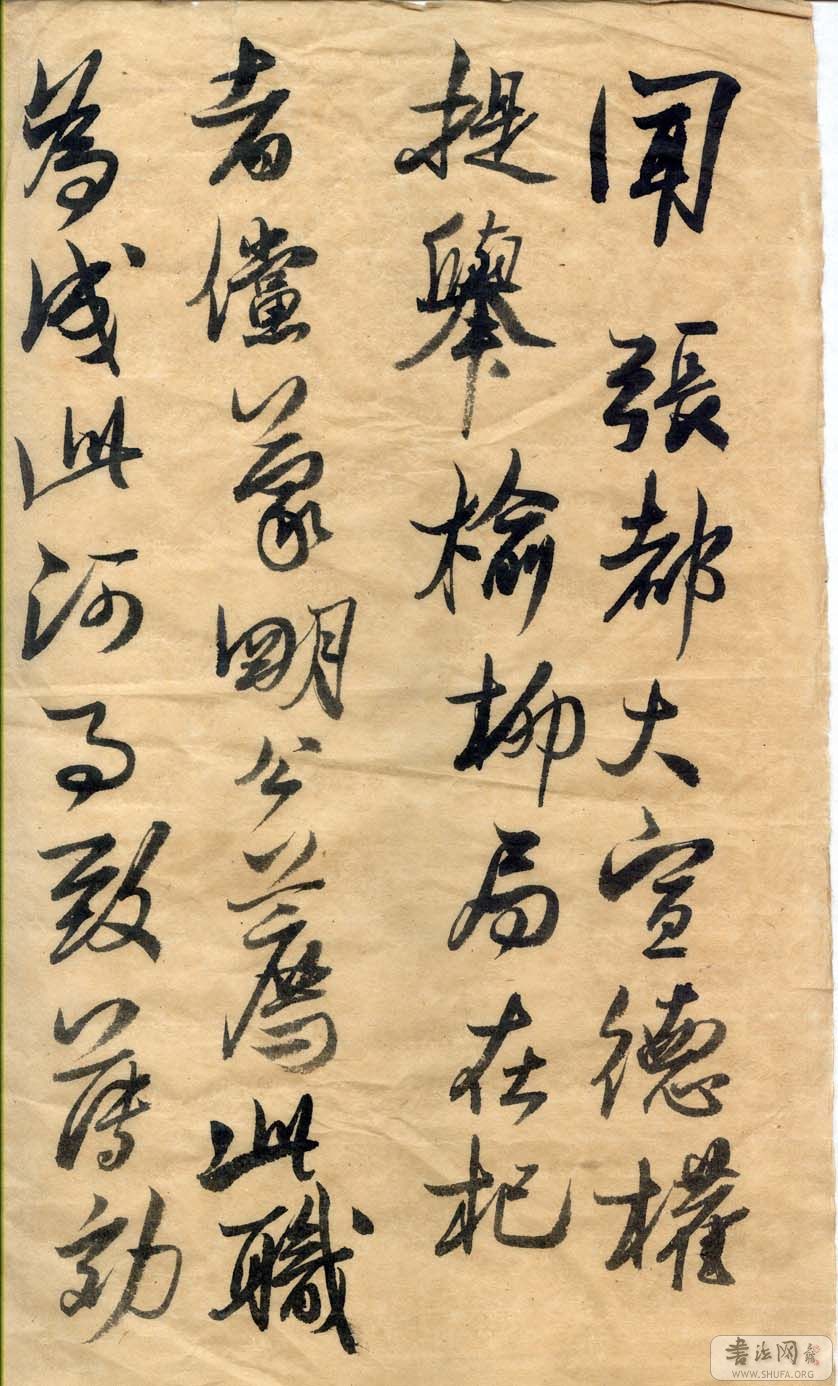 聞 張都大宣德權
提舉榆柳局在杞
者儻蒙明公薦此職
為成此河事致薄効
書法网
WWW.SHUFA.ORG